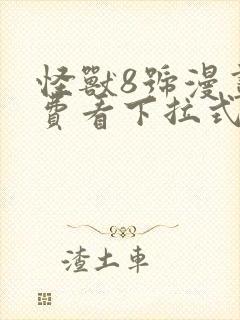 怪獸8號漫
費看下拉式
渣土車